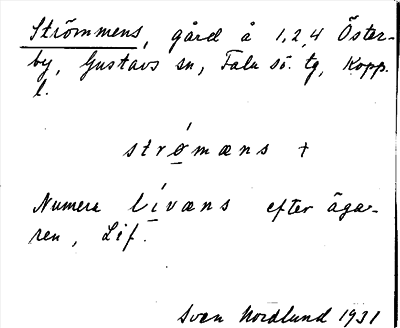 Strömmens, gård å 1,2,4 Öster-
by, Gustavs sn, Falu sö. tg, Kopp.
l.
strǿmæns +
Numera lívæns efter äga-
ren, Lif.
Sven Nordlund 1931